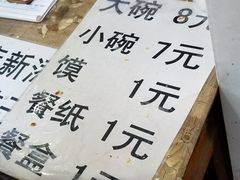 大碗 8元
小碗 7元
馍 1元
餐纸 1元
餐盒 1元